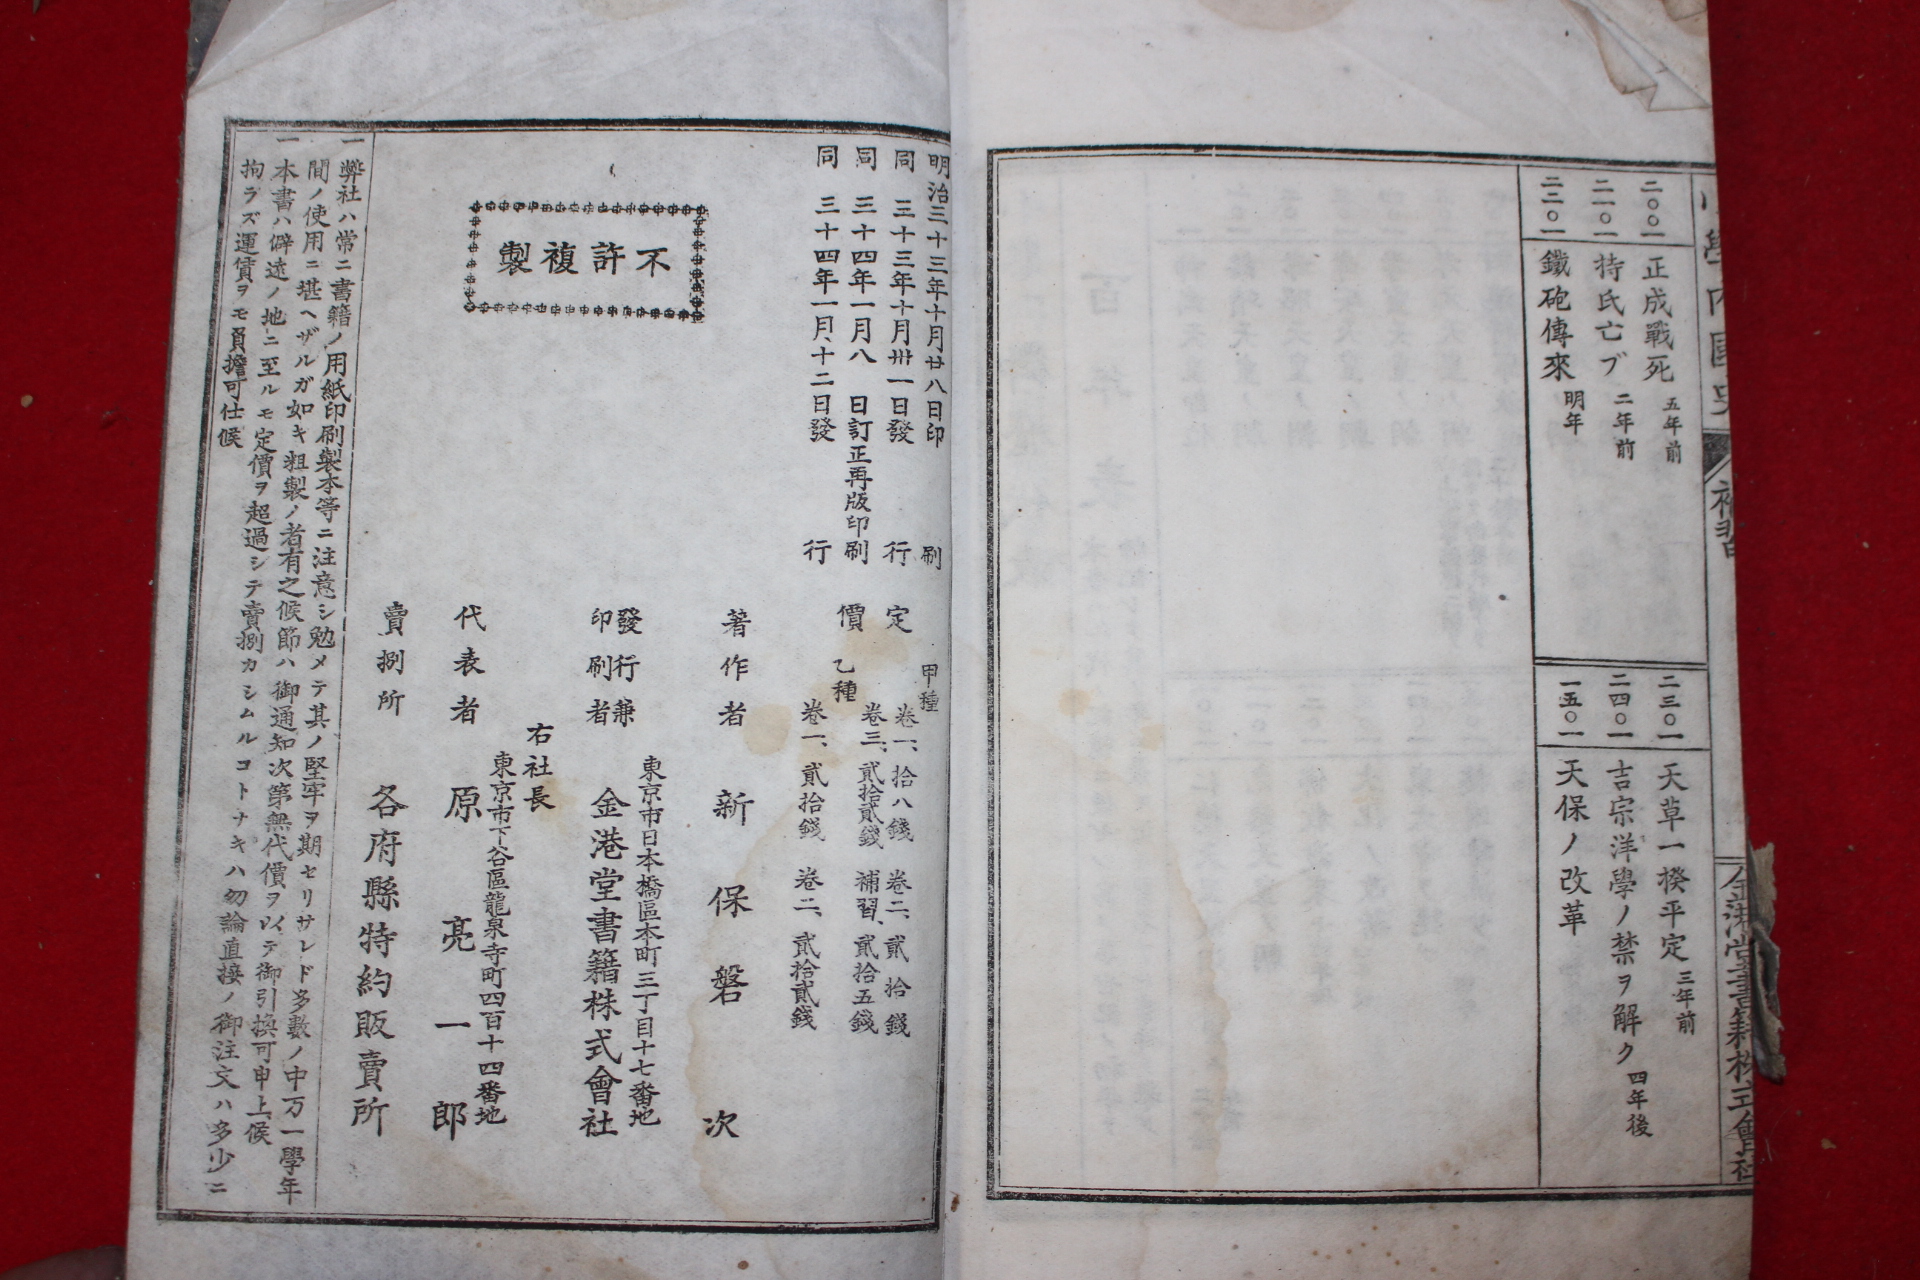 小學內國史
補習
金港堂書籍株式會社
二〇〇一 正成戰死 五年前
二一〇一 持氏亡ブ 二年前
二二〇一 鐵砲傳來 明年
二三〇一 天草一揆平定 三年前
二四〇一 吉宗洋學ノ禁ヲ解ク 四年後
二五〇一 天保ノ改革
明治三十三年十月廿八日印刷
同 三十三年十月卅一日發行
同 三十四年一月八 日訂正再版印刷
同 三十四年一月、十二日發行
不許複製
定價
甲種 卷一、拾八錢 卷二、貳拾錢
卷三、貳拾貳錢 補習、貳拾五錢
乙種 卷一、貳拾錢 卷二、貳拾貳錢
著作者 新保磐次
東京市日本橋區本町三丁目十七番地
發行兼印刷者 金港堂書籍株式會社
右社長
東京市下谷區龍泉寺町四百十四番地
代表者 原亮一郎
賣捌所 各府縣特約販賣所
一弊社ハ常ニ書籍ノ用紙印刷製本等ニ注意シ勉メテ其ノ堅牢ヲ期セリサレド多數ノ中万一學年
間ノ使用ニ堪ヘザルガ如キ粗製ノ者有之候節ハ御通知次第無代價ヲ以テ御引換可申上候
一本書ハ僻遠ノ地ニ至ルモ定價ヲ超過シテ賣捌カシムルコトナキハ勿論直接ノ御注文ハ多少ニ
拘ラズ運賃ヲモ負擔可仕候